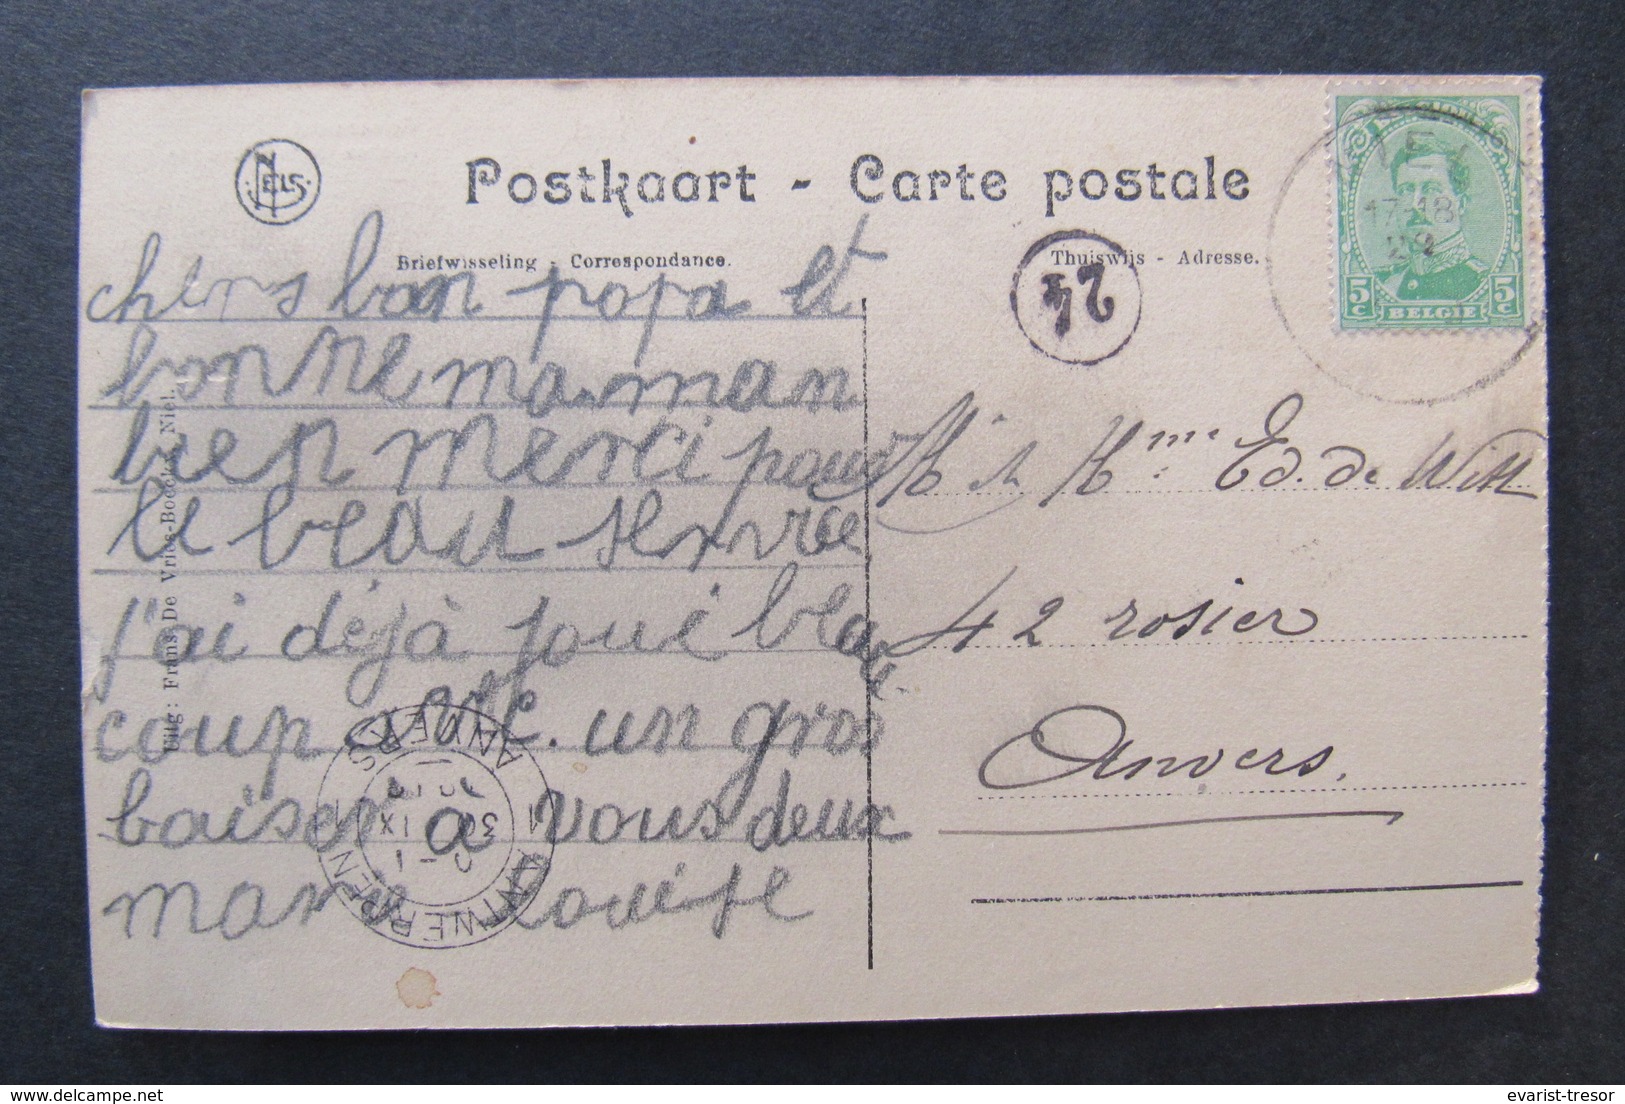 NELS
Postkaart - Carte postale
Briefwisseling - Correspondance.
Thuiswijs - Adresse.
24
17-18
29
5c BELGIE 5c
chers bon papa et
bonne maman
bien merci pour
le beau service
j'ai déjà joué beau
coup avec un gros
baiser a vous deux
marie Louise
Uitg: Frans De Vriese-Boeckx, Niel.
M et Mme Ed. de Witt
42 rosier
Anvers.
ANVERS
ANTWERPEN
1 1
30 IX
evarist-tresor